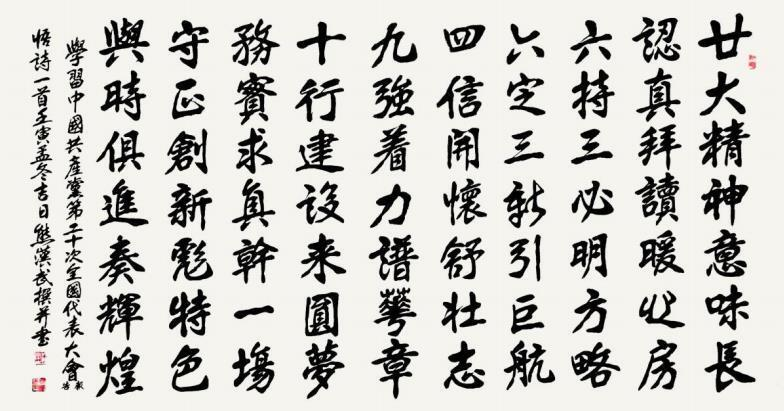 廿大精神意味長
認真拜讀暖心房
六持三必明方略
六定三新引巨航
四信開懷舒壯志
九強着力譜華章
十行建設来圓夢
務實求真幹一場
守正創新彪特色
與時俱進奏輝煌
學習中國共産黨第二十次全國代表大會報告
悟詩一首壬寅孟冬吉日熊漢武撰并書